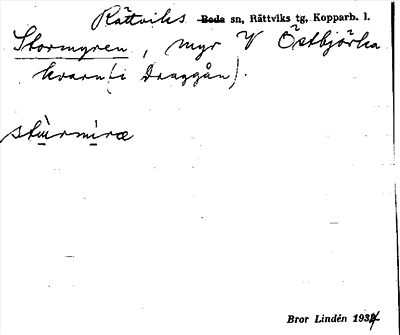 Rättviks Boda sn, Rättviks tg, Kopparb. l.
Stormyren, myr V Östbjörka
kvarn (i Draggån).
stùrmìræ
Bror Lindén 1934